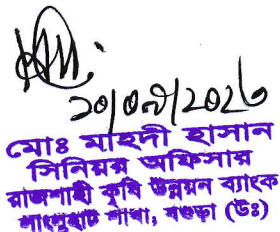 মোঃ মাহদী হাসান
সিনিয়র অফিসার
রাজশাহী কৃষি উন্নয়ন ব্যাংক
শাখা, বগুড়া (উঃ)